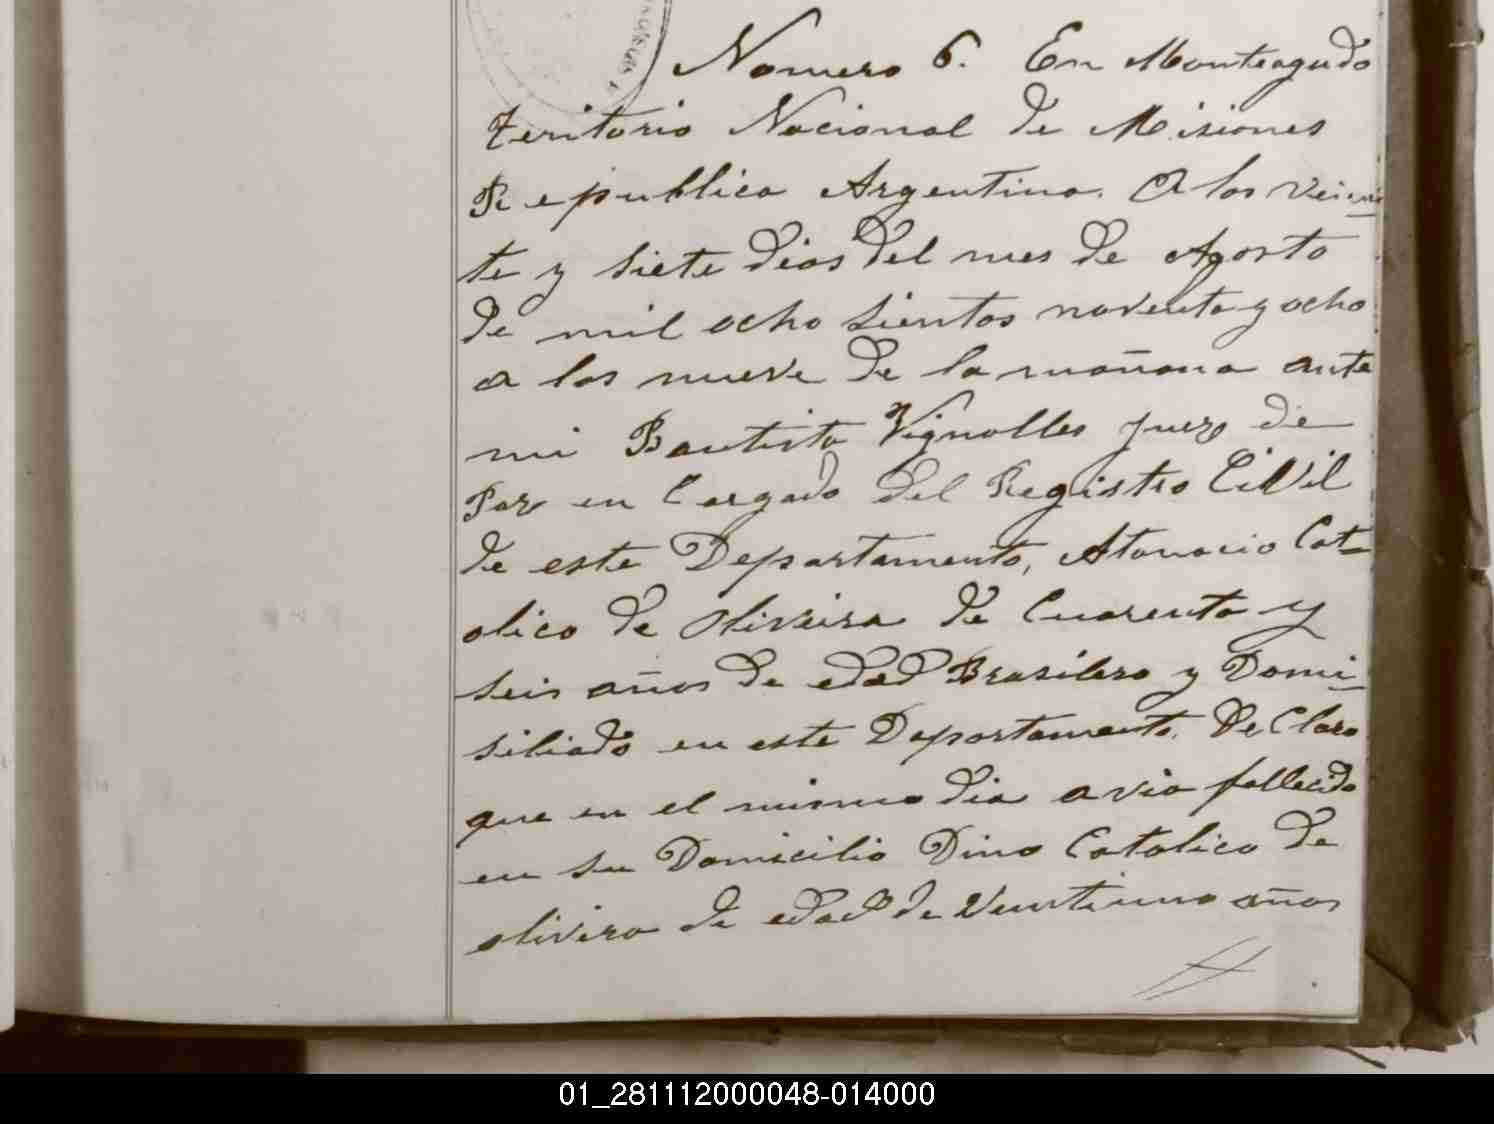 Nomero 6. En Monteagudo
Teritorio Nacional de Misiones
Republica Argentina. A los vein-
te y siete dias del mes de Agosto
de mil ocho sientos noventa y ocho
a las nueve de la mañana ante
mi Bautista Vignolles Juez de
Paz en Cargado del Registro CiVil
de este Departamento, Atanacio Cat-
olico de Oliveira de Cuarenta y
seis años de edad Brasilero y Domi-
siliado en este Departamento. De Claro
que en el mismo dia avia fallecido
en su Domicilio Dino Catolico de
olivera de edad de Veintiuno años
01_281112000048-014000